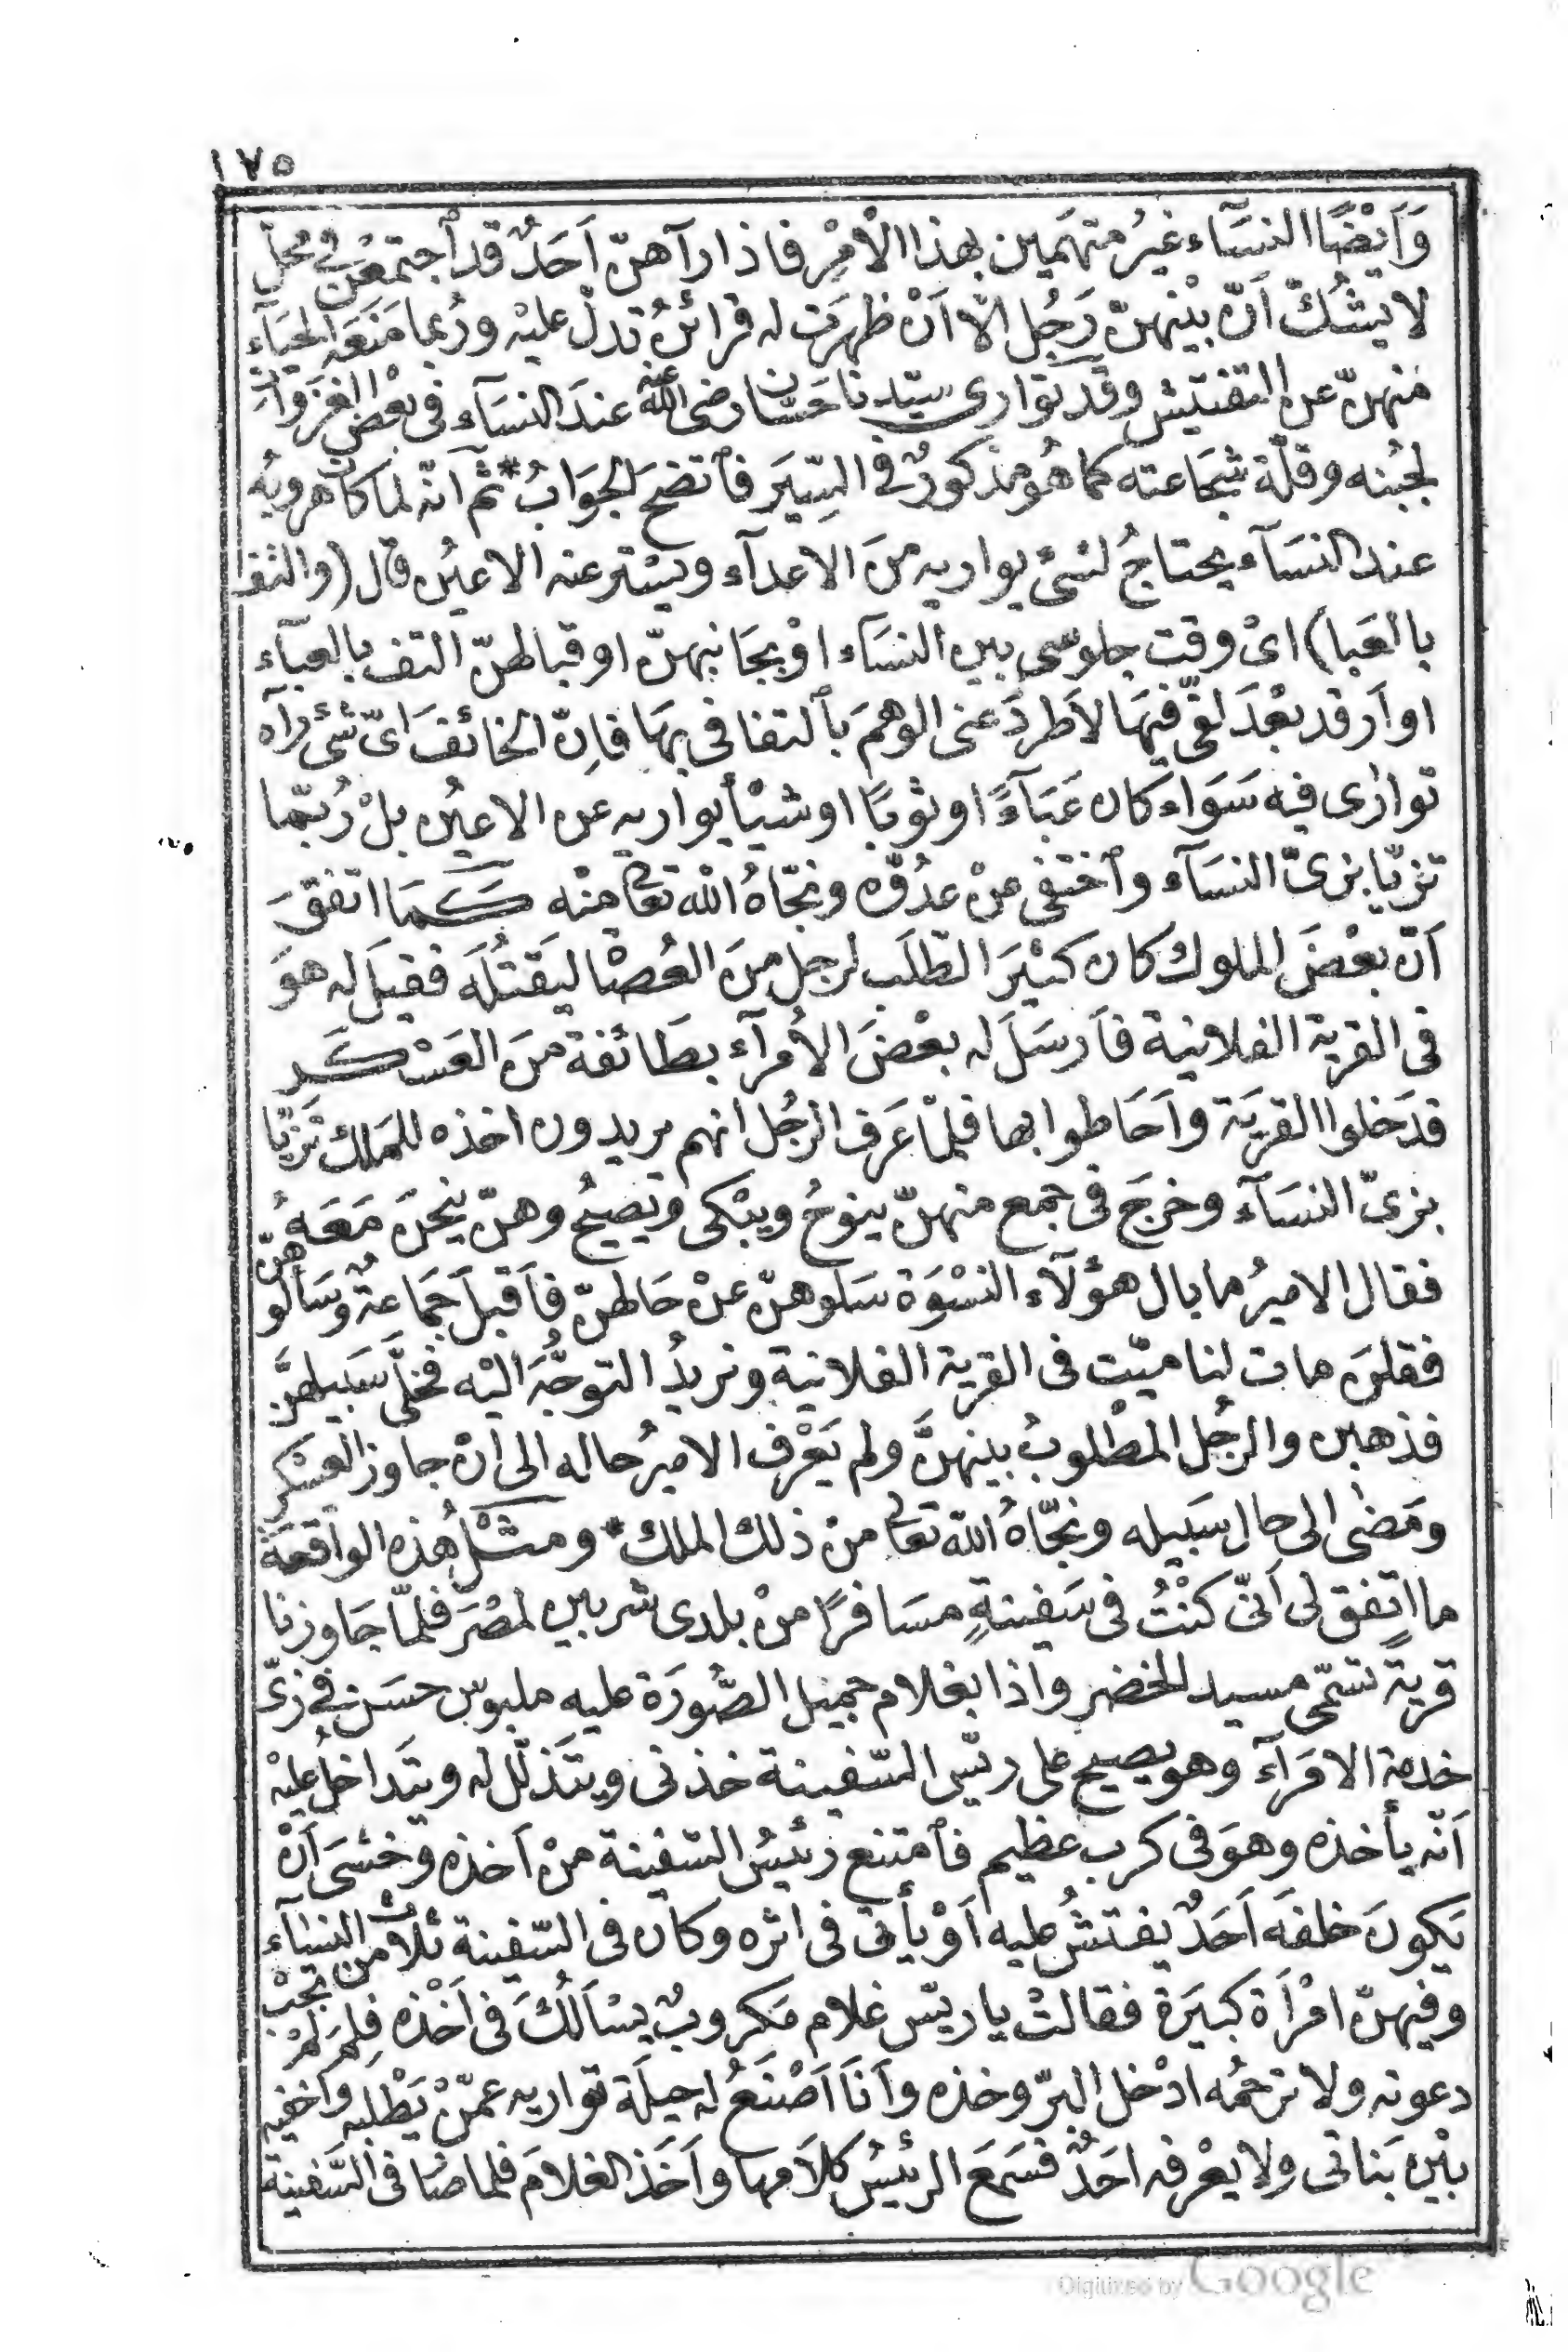 ١٧٥
وَاَيْضًا النسَآء غيرُ متهَمين بهذا الْاَمْرِ فاذا رآهنّ اَحَدٌ قد ٱجتمعْن فى محلٍ
لا يَشُكّ اَنّ بيْنهنّ رَجُل الّا اَنْ ظهرَت له قرائنُ تدلّ عليْه ورُبما مَنعَه الحيَآء
منهنّ عن التفتيش وقد توارى سيّدنا حَسّان رضى الله عنه عندَ النسَآء فى بعْض الغزوات
لجُبنه وقلّة شجَاعته كما هُو مذكورٌ فى السِّيَر فٱتضحَ الجوَابُ * ثمّ انّه لما كان هروبُه
عند النسَآء يحتاجُ لشئ يواريه منَ الاعدآء ويسْتر عنه الاعيُن قال (والتفا
بالعَبا) اىْ وقت جلوسى بين النسَآء اوْ بجَانبهنّ او قباطنّ التف بالعبآء
او اَرقد بعْدَ لفّى فيهَا لاَطردَ عنى الوهمَ بٱلتفافى بهَا فاِنّ الخائفَ اىّ شئ رآه
توارٰى فيه سَوَاء كان عَبَآءً او ثوبًا او شيْأ يواريه عن الاعيُن بلْ رُبّما
تزيّا بزىّ النسَآء وٱختفى عنْ عدُوّه ونجّاهُ الله تعالى منْه كَمَا اتفقَ
اَنّ بعْضَ الملوك كان كثيْرَ الطّلَب لرجل منَ العُصْا ليَقتُلَه فقيلَ له هوَ
فى القرية الفلانية فاَرسَلَ له بعْضَ الاُمرآء بطَائفة منَ العَسْكَر
فدَخلوا القريَة واَحَاطوا بها فلمّا عَرف الرجُل انهم يريدون اخذه للملك تزيّا
بزىّ النسَآء وخرجَ فى جمع منهنّ ينوحُ ويبْكى ويَصيحُ وهنّ ينحْنَ مَعَهُ
فقال الاميرُ ما بال هؤلَآء النسْوَة سَلوهنّ عنْ حَاطنّ فاَقبلَ جَمَاعةٌ وسَاَلوهنّ
فقلنَ مات لنا ميّت فى القرية الفلانية ونريدُ التوجُّهَ اليْه فخلّى سَبيلهنَّ
فذهبن والرجُل المطْلوبُ بينهنَّ ولم يَعْرف الاميرُ حاله الى انْ جاوز العسْكر
ومَضٰى الى حال سَبيله ونجّاهُ الله تعالى منْ ذلك الملك * ومثْلُ هٰذه الواقعَة
ما اتفق لى اَنّى كنْتُ فى سَفينةٍ مسَافرًا منْ بلدى شربين لمصْرَ فلمّا جَاوزنا
قريةً تسَمّى مسيد الخضر واذا بغلام جميْل الصُّورَة عليه ملبوس حسَن فى زىّ
خدمة الامَرَآء وهو يصيح على ريّس السّفينة خذنى ويتَذلّل له ويتَداخلُ عليْه
اَنّه يأخذه وهوَ فى كرب عظيم فٱمتنع رئيسُ السّفينة منْ اَخذه وخشىَ اَنْ
يَكونَ خلفَه اَحَدٌ يفتشُ عليه اَوْ يأتى فى اثره وكان فى السّفينة ثلاثٌ من النسَآء
وفيهنّ امْرأَة كبيَرة فقالتْ يا ريّس غلام مَكروبٌ يسْاَلُكَ فى اَخْذه فلِمَ لمْ تجبْ
دعوته ولا ترحمُه ادْخل البرّ وخذه واَنَا اَصْنَعُ له حيلَة تواريه عمّنْ يَطْلبه واَخفيه
بيْن بَناتى ولا يعْرفه احَدٌ فسَمعَ الرئيسُ كلاَمها واَخَذ الغلامَ فلما صَار فى السَّفينة
Digitized by Google